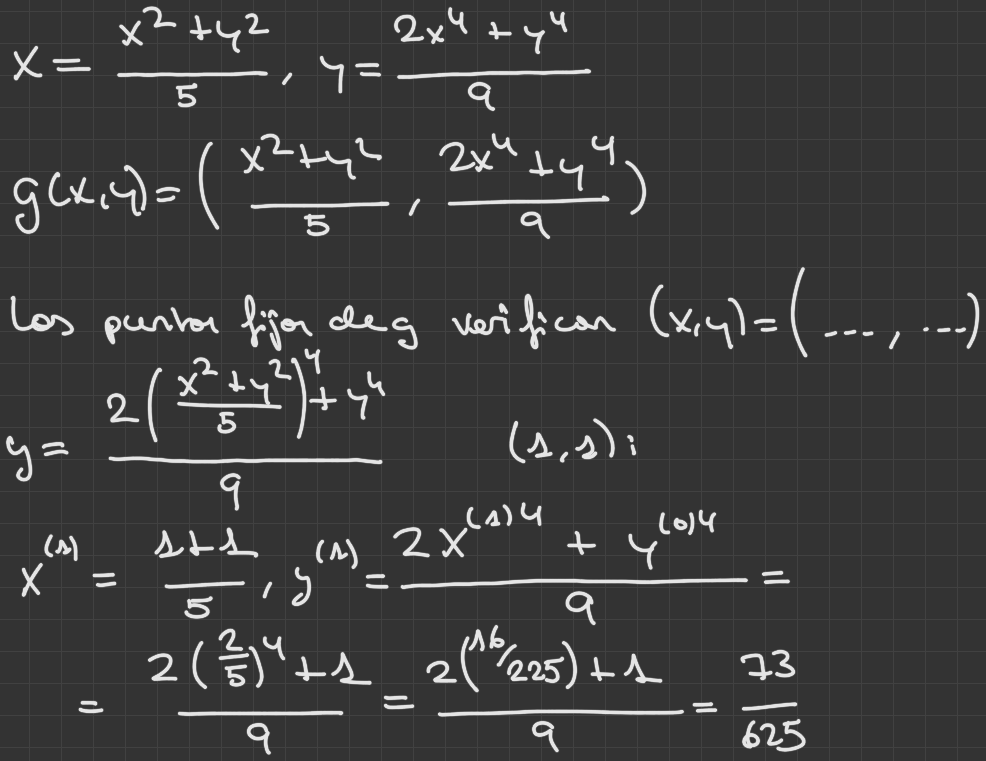 x = (x² + y²)/5 , y = (2x⁴ + y⁴)/9
g(x,y) = ( (x² + y²)/5 , (2x⁴ + y⁴)/9 )
Los puntos fijos de g verifican (x,y) = ( ... , ... )
y = (2((x² + y²)/5)⁴ + y⁴)/9 (1,1) :
x⁽¹⁾ = (1+1)/5 , y⁽¹⁾ = (2x⁽¹⁾⁴ + y⁽⁰⁾⁴)/9 =
= (2(2/5)⁴ + 1)/9 = (2(16/225) + 1)/9 = 73/625